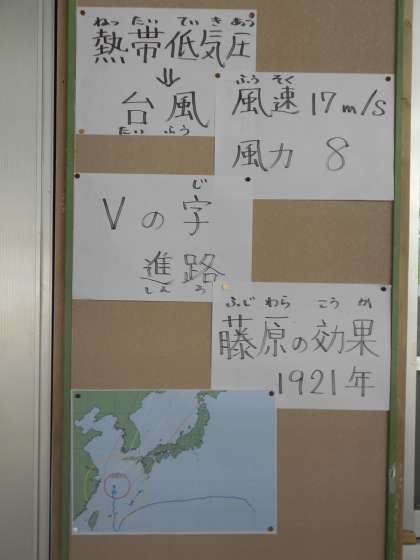 ねったいていきあつ
熱帯低気圧
⇓
台風
たいふう
ふうそく
風速17m/s
風力 8
じ
Vの字
進路
しんろ
ふじわら こうか
藤原の効果
1921年